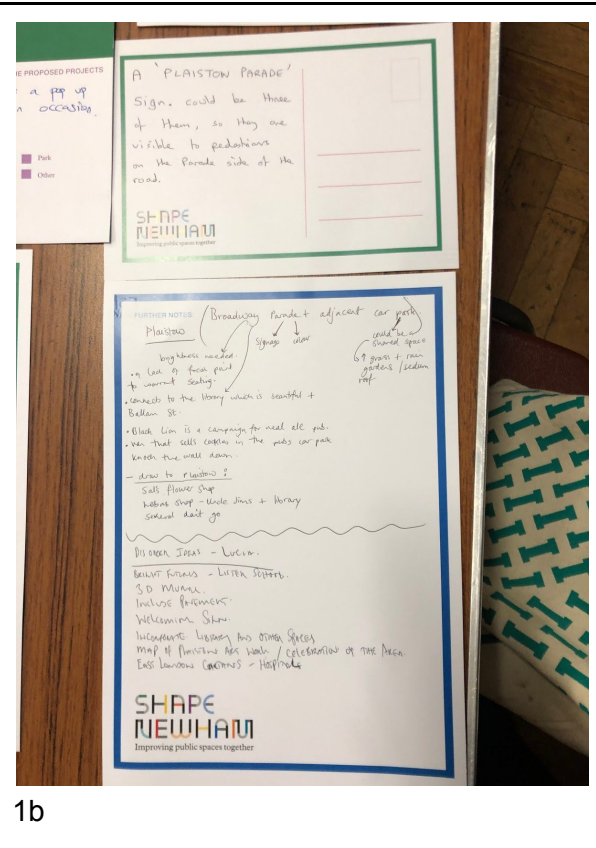 E PROPOSED PROJECTS
a pop up
occasion.
Park
Other
A 'PLAISTOW PARADE'
Sign. could be three
of them, so they are
visible to pedestrians
on the Parade side of the
road.
SHAPE
NEWHAM
Improving public spaces together
FURTHER NOTES
(Broadway Parade + adjacent car park)
Plaistow
signage colour
could be a
shared space
brightness needed
↑ grass + rain
gardens / sedum
roof.
• lack of focal point
to warrant seating.
• connects to the library which is beautiful +
Balaam St.
• Black Lion is a campaign for real ale pub.
• that sells in the pubs car park
knock the wall down.
- draw to Plaistow?
Sals flower shop
shop - Uncle Jims + library
don't go
IDEAS -
BRIGHT FUTURES - LISTER SCHOOL.
3D MURAL.
INCLUDE PAVEMENT.
WELCOMING SIGN.
INCORPORATE LIBRARY AND OTHER SPACES
MAP OF PLAISTOW ART WORK / CELEBRATION OF THE AREA.
EAST LONDON - HOSPITAL
SHAPE
NEWHAM
Improving public spaces together
1b